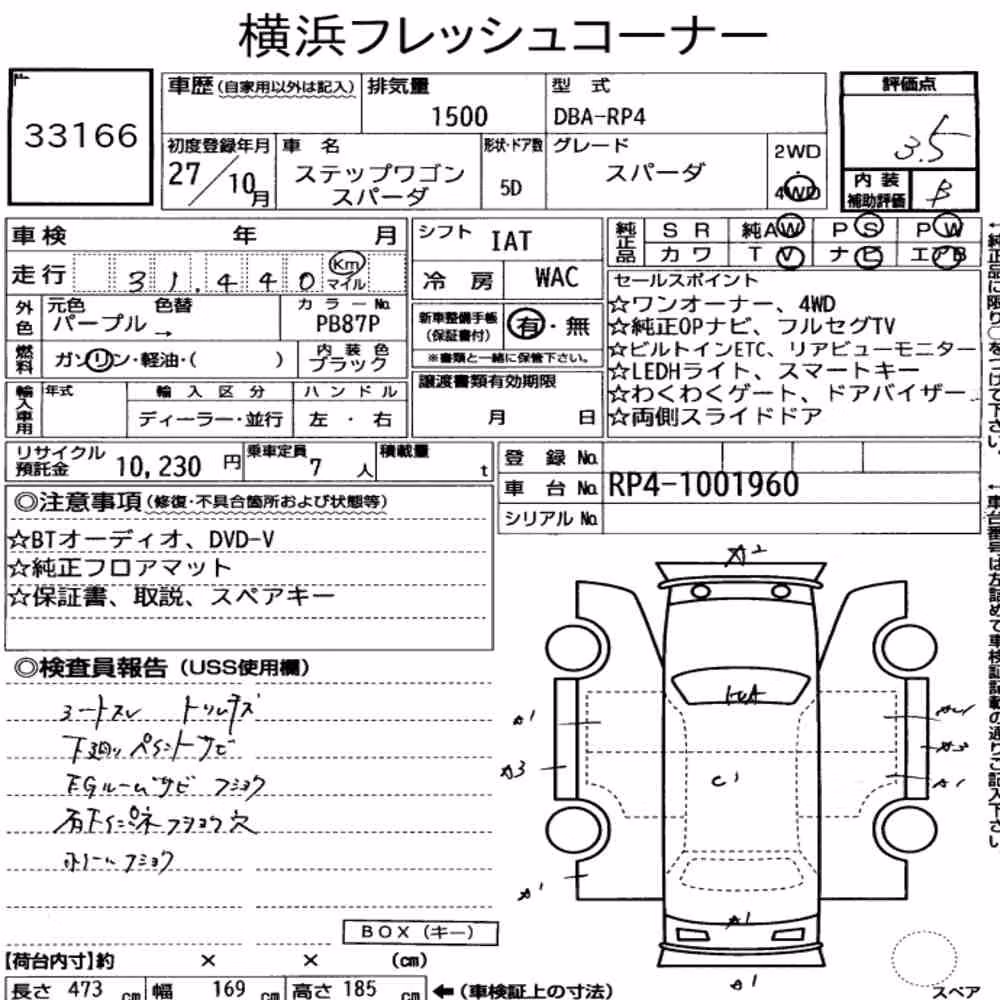 横浜フレッシュコーナー
33166
車歴(自家用以外は記入)
排気量
1500
型 式
DBA-RP4
評価点
3.5
内 装
補助評価
B
初度登録年月
27/10月
車 名
ステップワゴン
スパーダ
形状・ドア数
5D
グレード
スパーダ
2WD
4WD
車検 年 月
走行 31.440 Km マイル
外色
元色 色替
パープル →
カラーNo.
PB87P
燃料
ガソリン・軽油・( )
内 装 色
ブラック
輸入車用
年式
輸 入 区 分
ディーラー・並行
ハ ン ド ル
左 ・ 右
シフト IAT
冷 房 WAC
新車整備手帳
(保証書付)
有・無
※書類と一緒に保管下さい。
譲渡書類有効期限
月 日
純正品
S R 純AW P S P W
カ ワ T V ナ ビ エアB
セールスポイント
☆ワンオーナー、4WD
☆純正OPナビ、フルセグTV
☆ビルトインETC、リアビューモニター
☆LEDHライト、スマートキー
☆わくわくゲート、ドアバイザー
☆両側スライドドア
リサイクル
預託金
10,230 円
乗車定員
7 人
積載量
t
登 録 No.
車 台 No. RP4-1001960
シリアル No.
◎注意事項(修復・不具合箇所および状態等)
☆BTオーディオ、DVD-V
☆純正フロアマット
☆保証書、取説、スペアキー
◎検査員報告(USS使用欄)
シートスレ トリムキズ
下廻り ペイントサビ
EGルームサビ フショク
フショク穴
ホイールフショク
A2
A1
A3
A1
C1
A1
A1
A1
BOX(キー)
【荷台内寸】約 × × (cm)
長さ 473 cm 幅 169 cm 高さ 185 cm ←(車検証上の寸法)
スペア
←純正品に限り○をつけて下さい。
←車台番号は左詰めで車検証記載の通りご記入下さい